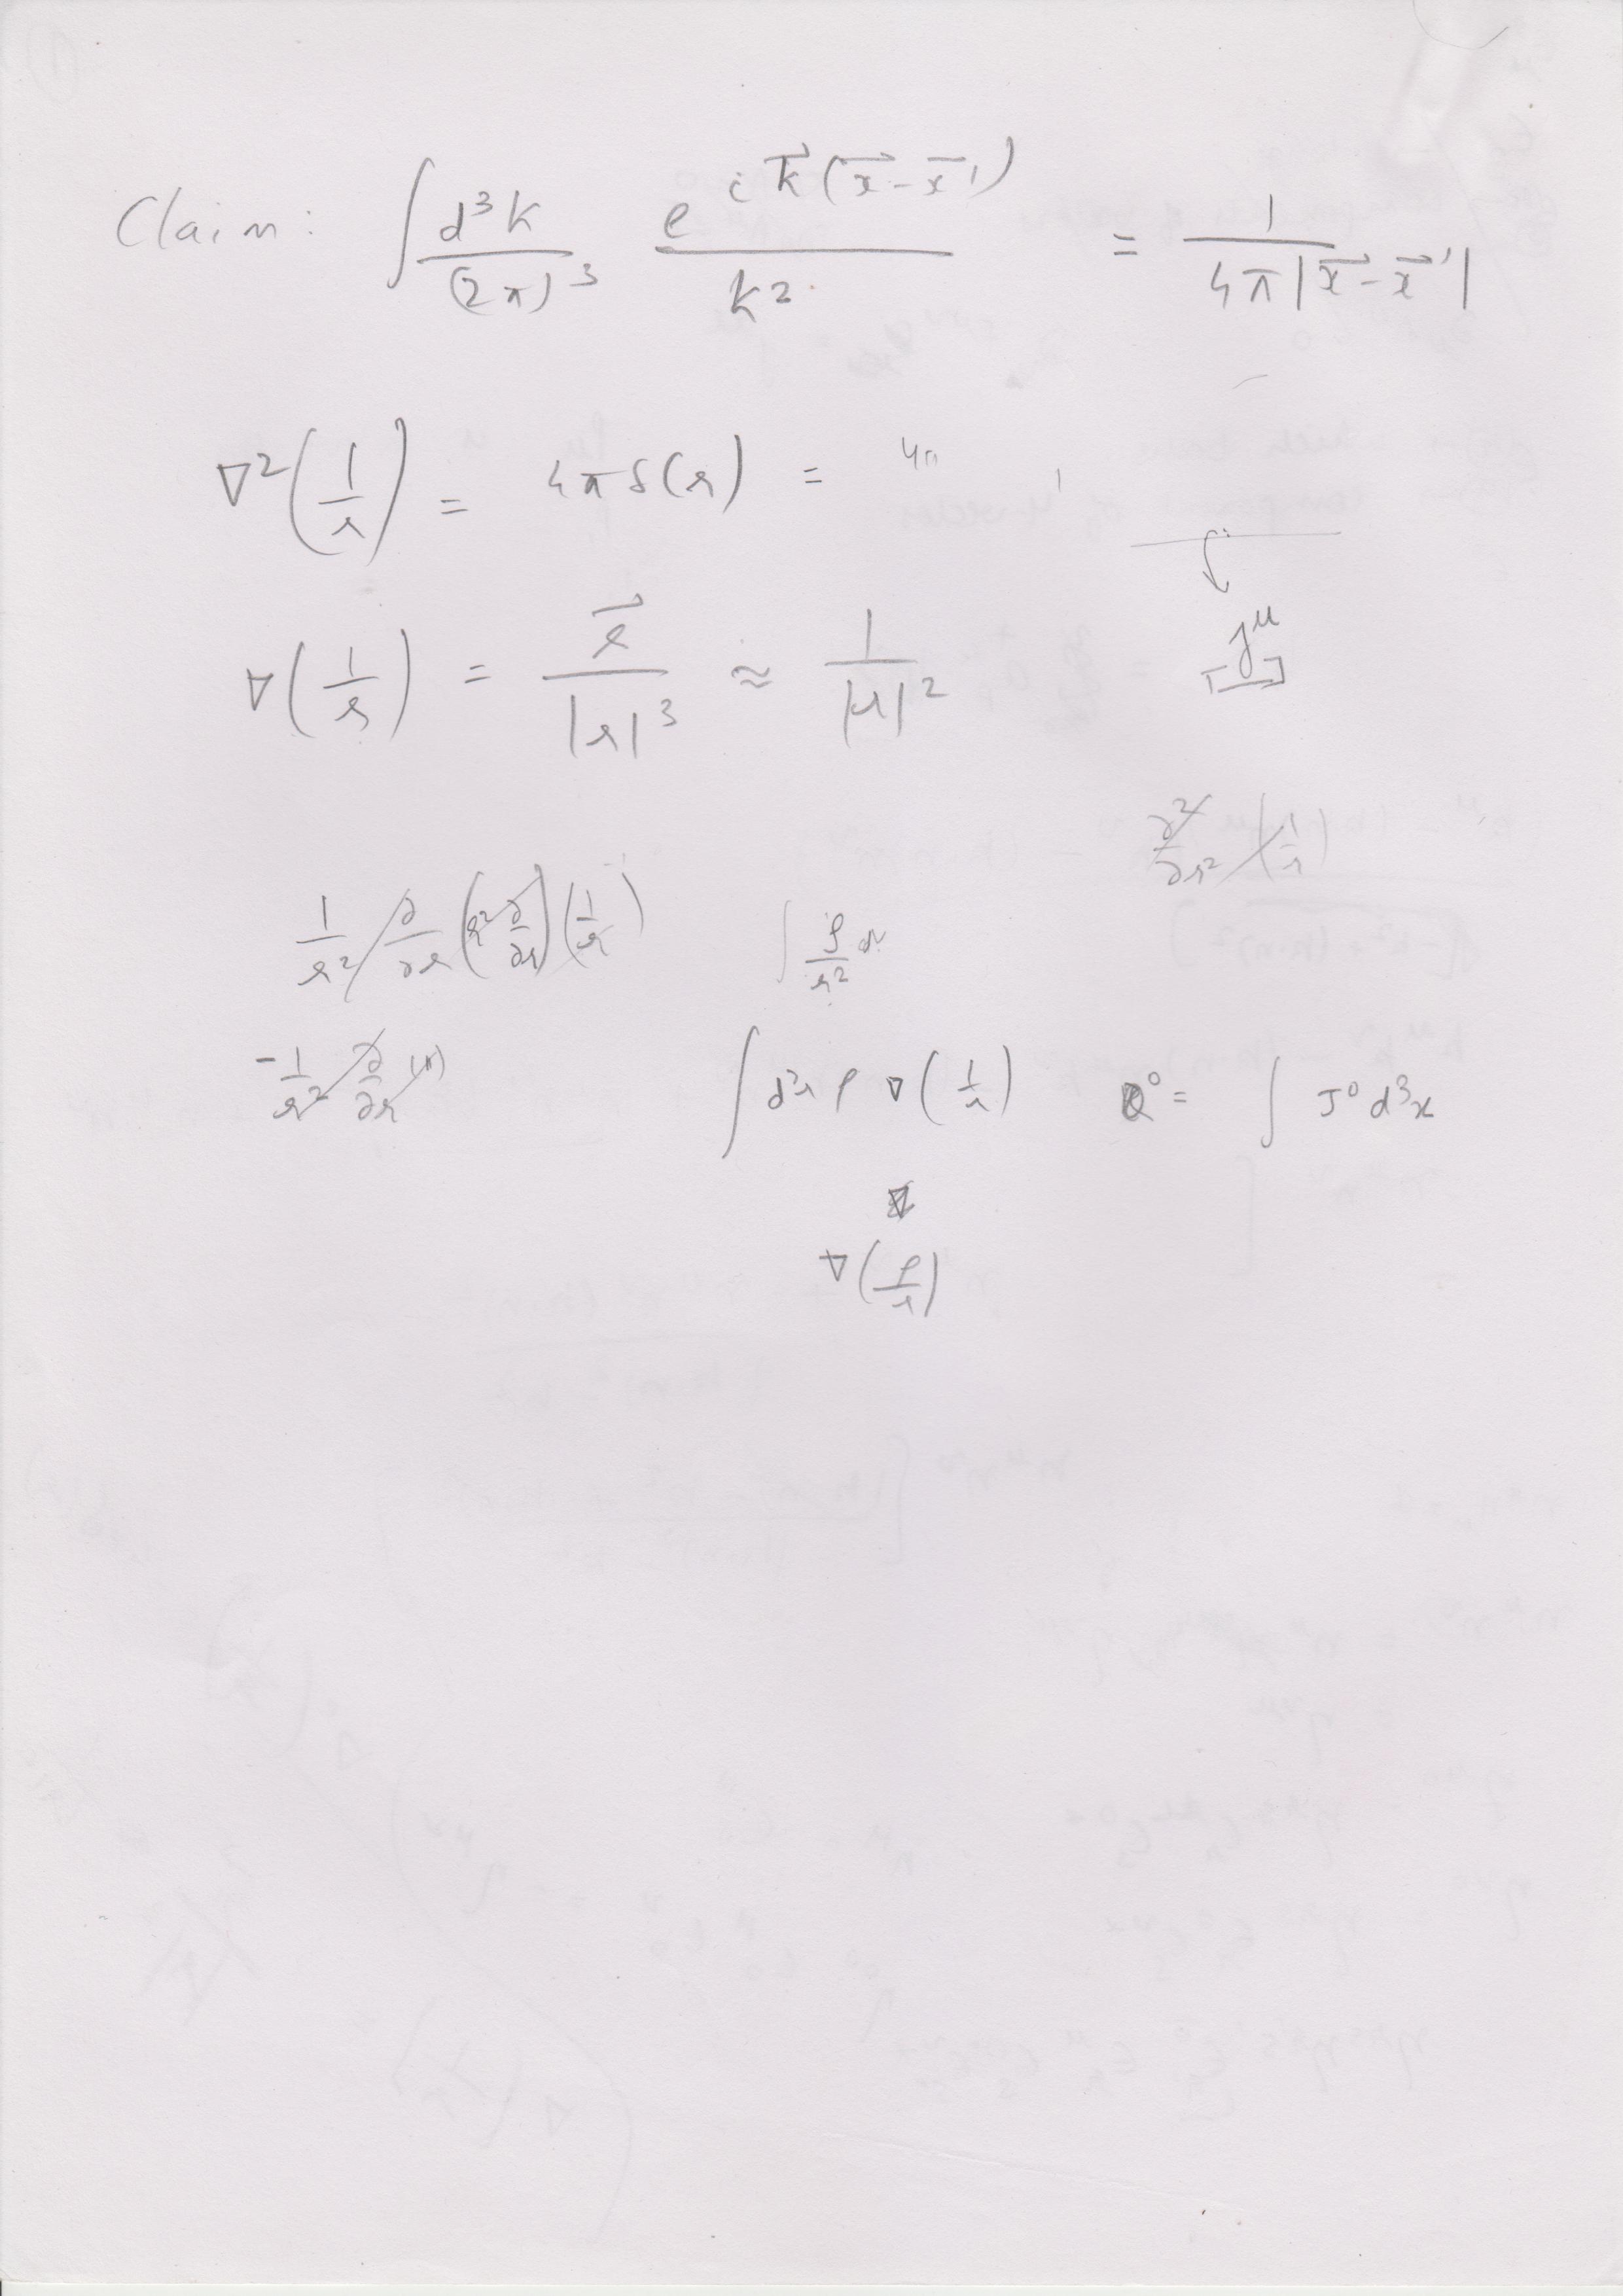 Claim: ∫ d³k/(2π)³ e^{i k⃗(x⃗-x⃗')}/k² = 1/(4π|x⃗-x⃗'|)
∇²(1/r) = 4πδ(r) = 4π
∇(1/r) = r⃗/|r|³ ≈ 1/|r|²
J^μ
∂²/∂r² (1/r)
1/r² ∂/∂r (r² ∂/∂r)(1/r)
∫ ρ/r²
-1/r² ∂/∂r (r)
∫ d³r ρ ∇(1/r)
Q⁰ = ∫ J⁰ d³x
∇(ρ/r)